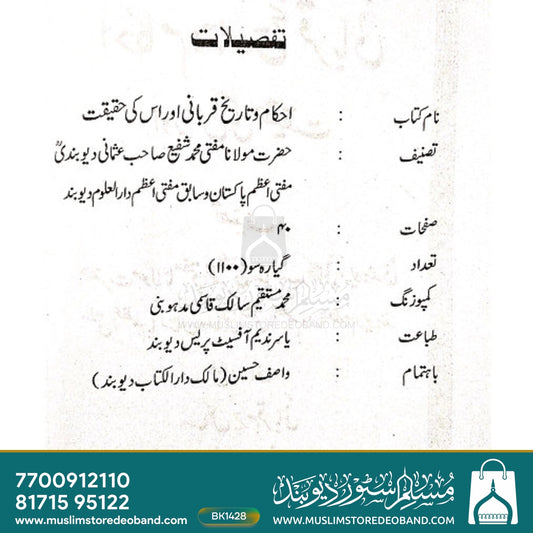 تفصیلات
نام کتاب : احکام و تاریخ قربانی اور اس کی حقیقت
تصنیف : حضرت مولانا مفتی محمد شفیع صاحب عثمانی دیوبندیؒ
مفتی اعظم پاکستان و سابق مفتی اعظم دارالعلوم دیوبند
صفحات : ۴۰
تعداد : گیارہ سو (۱۱۰۰)
کمپوزنگ : محمد مستقیم سالک قاسمی مدہوبنی
طباعت : یاسر ندیم آفسیٹ پریس دیوبند
باہتمام : واصف حسین (مالک دارالکتاب دیوبند)
مسلم اسٹور دیوبند
WWW.MUSLIMSTOREDEOBAND.COM
7700912110
81715 95122
www.muslimstoredeoband.com
BK1428
مسلم اسٹور دیوبند
WWW.MUSLIMSTOREDEOBAND.COM